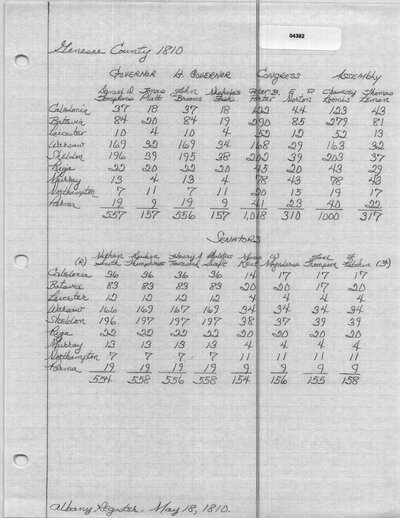 04382
Genesee County 1810
Governor Lt. Governor Congress Assembly
Daniel D. Tompkins Jonas Platt John Broome Nicholas Fish Peter B. Porter E P Norton Chauncey Loomis Thomas Lemon
Caledonia 37 18 37 18 122 44 123 43
Batavia 84 20 84 19 290 85 279 81
Leicester 10 4 10 4 52 12 52 13
Warsaw 169 32 169 34 168 29 163 32
Sheldon 196 39 195 38 202 39 203 37
Riga 22 20 22 20 45 20 43 29
Murray 13 4 13 4 78 43 78 43
Northampton 7 11 7 11 20 15 19 17
Parma 19 9 19 9 41 23 40 22
557 157 556 157 1,018 310 1000 317
Senators
(R) Nathan Smith Reuben Humphreys Henry A Townsend Philetus Swift Moss Kent Joel Thompson (F)
Caledonia 36 36 36 36 14 17 17 17
Batavia 83 83 83 83 20 20 17 20
Leicester 12 12 12 12 4 4 4 4
Warsaw 166 169 167 169 34 34 34 34
Sheldon 196 197 197 197 38 37 39 39
Riga 22 22 22 22 20 20 20 20
Murray 13 13 13 13 4 4 4 4
Northampton 7 7 7 7 11 11 11 11
Parma 19 19 19 19 9 9 9 9
554 558 556 558 154 156 155 158
Albany Register. May 18, 1810.